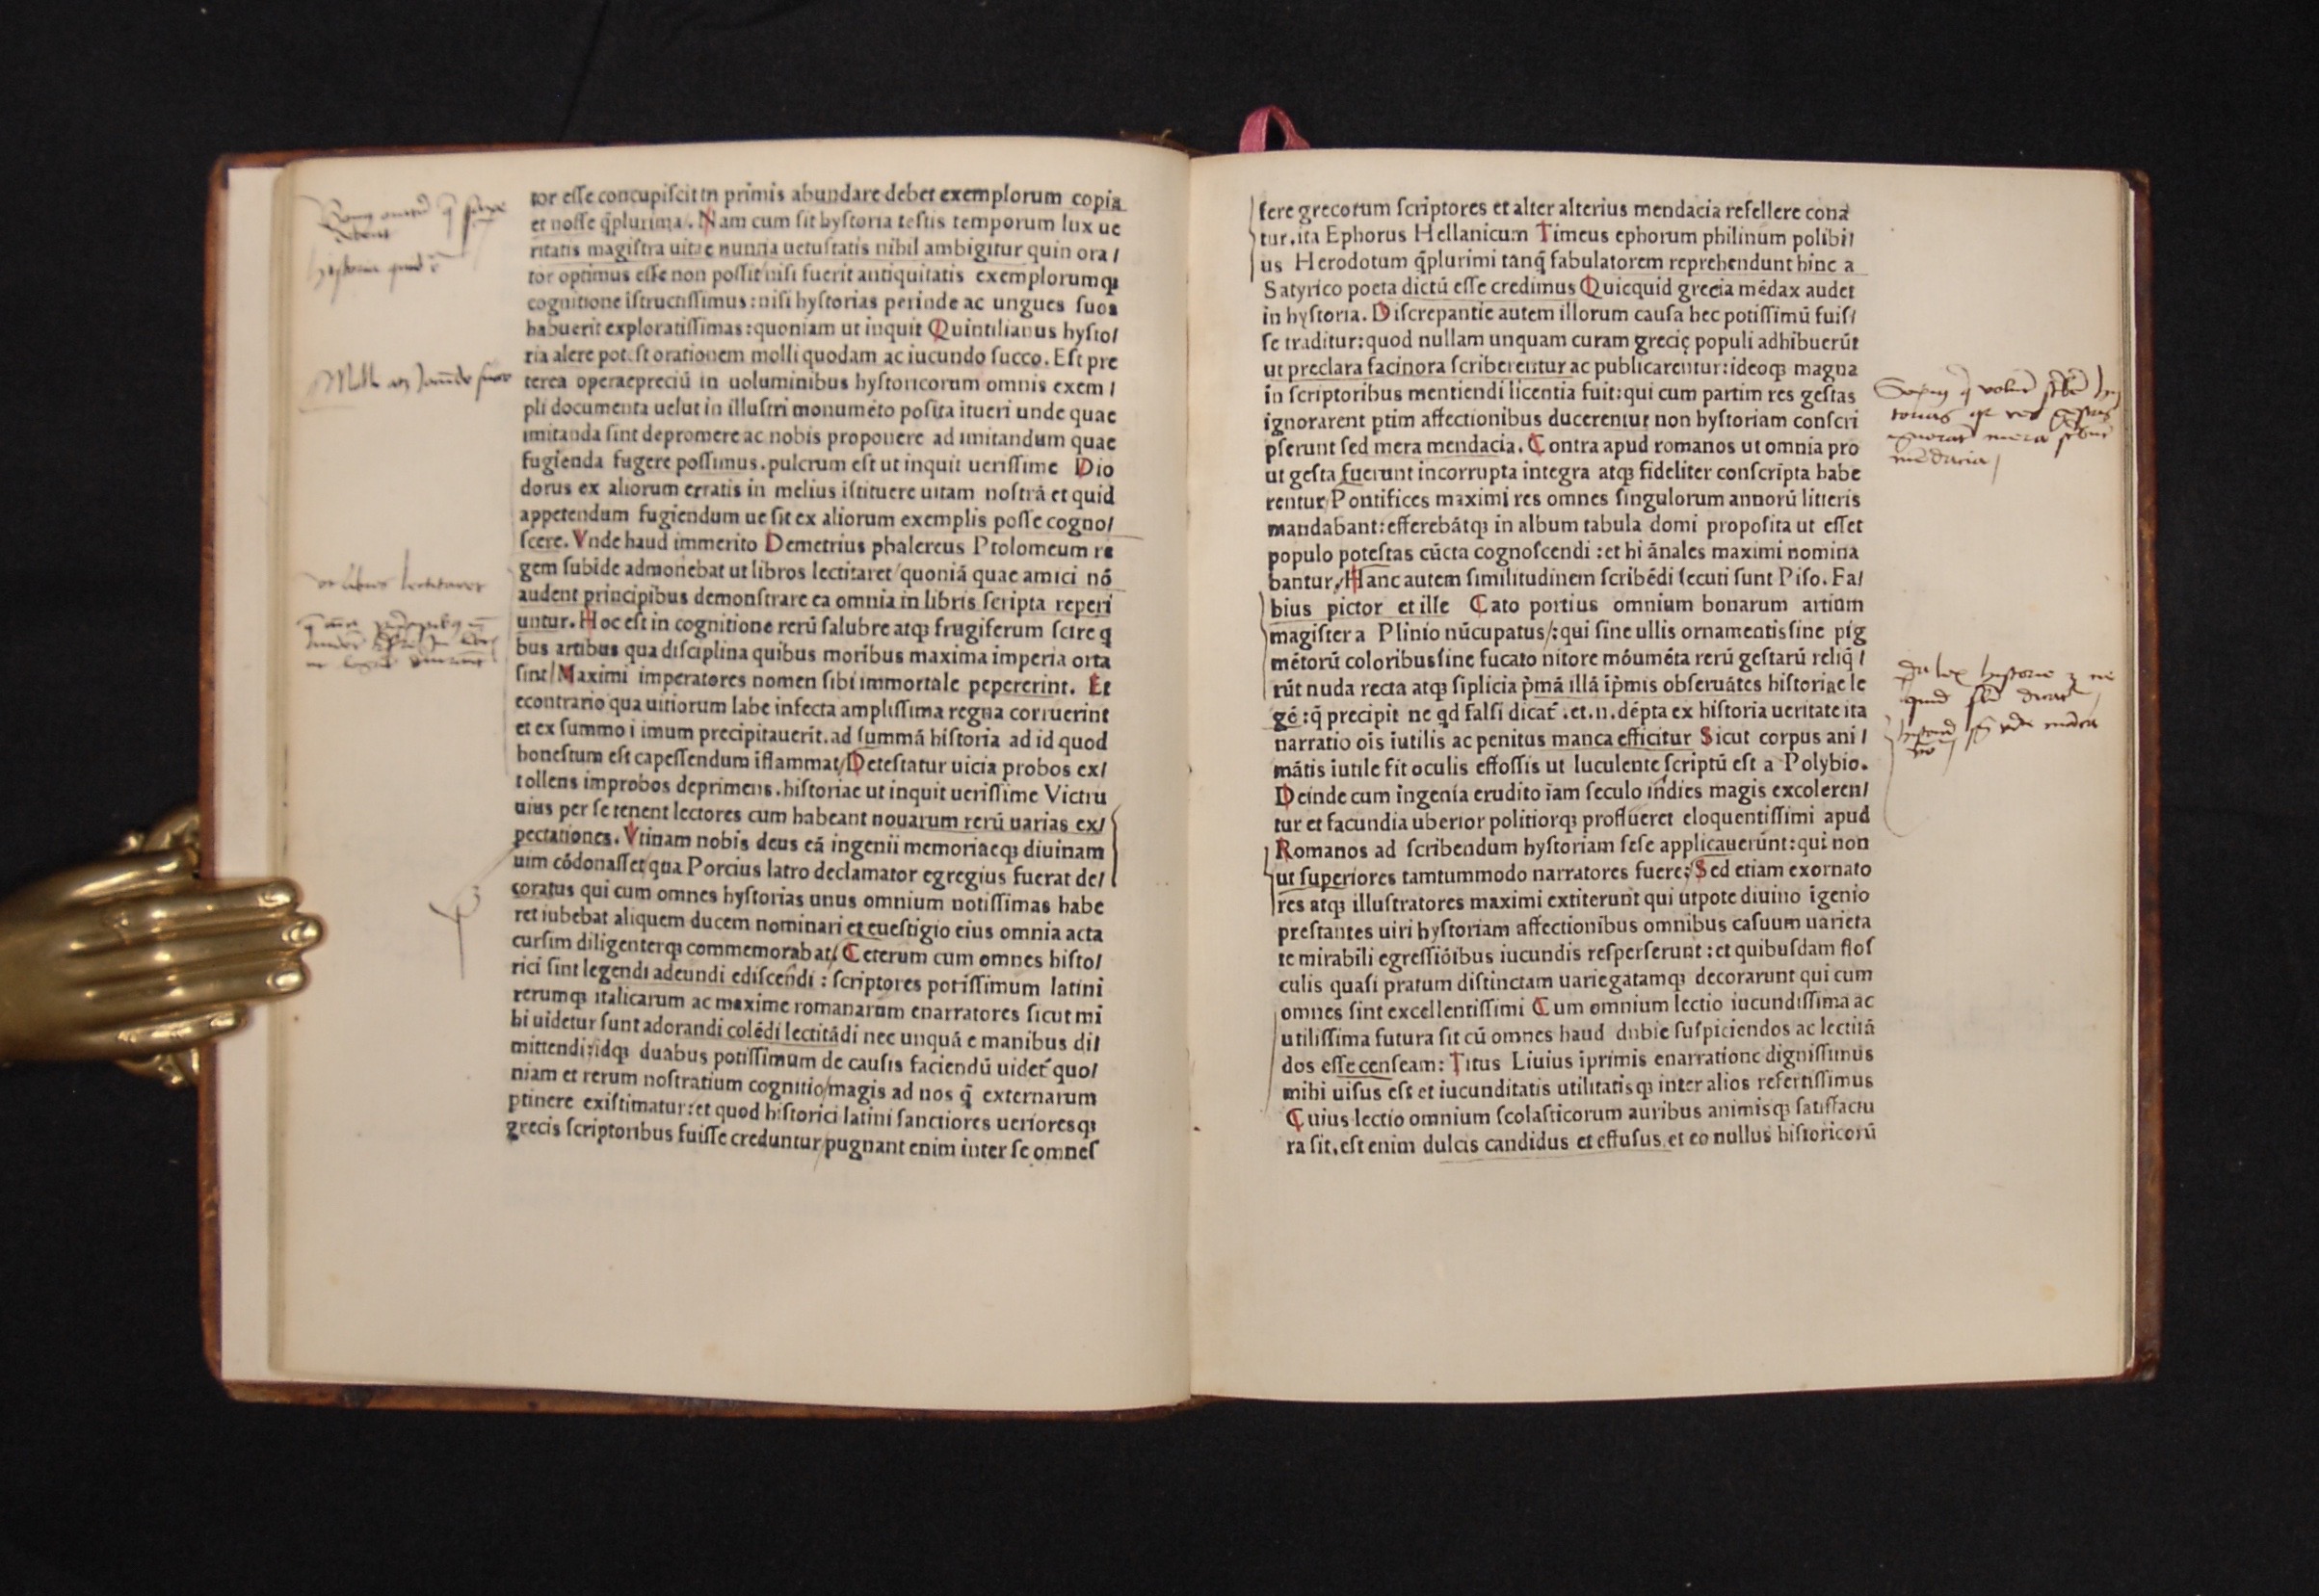 tor eſſe concupiſcit in primis abundare debet exemplorum copia
et noſſe q̄plurima. Nam cum ſit hyſtoria teſtis temporum lux ue
ritatis magiſtra uitae nuntia uetuſtatis nihil ambigitur quin ora/
tor optimus eſſe non poſſit niſi fuerit antiquitatis exemplorumqꝫ
cognitione iſtructiſſimus: niſi hyſtorias perinde ac ungues ſuos
habuerit exploratiſſimas: quoniam ut inquit Quintilianus hyſto/
ria alere poteſt orationem molli quodam ac iucundo ſucco. Eſt pre
terea operaepreciū in uoluminibus hyſtoricorum omnis exem/
pli documenta uelut in illuſtri monumēto poſita itueri unde quae
imitanda ſint depromere ac nobis proponere ad imitandum quae
fugienda fugere poſſimus. pulcrum eſt ut inquit ueriſſime Dio
dorus ex aliorum erratis in melius iſtituere uitam noſtrā et quid
appetendum fugiendum ue ſit ex aliorum exemplis poſſe cogno/
ſcere. Vnde haud immerito Demetrius phalereus Ptolomeum re
gem ſubide admonebat ut libros lectitaret/quoniā quae amici nō
audent principibus demonſtrare ea omnia in libris ſcripta reperi
untur. Hoc eſt in cognitione rerū ſalubre atqꝫ frugiferum ſcire q
bus artibus qua diſciplina quibus moribus maxima imperia orta
ſint/Maximi imperatores nomen ſibi immortale pepererint. Et
econtrario qua uitiorum labe infecta ampliſſima regna corruerint
et ex ſummo i imum precipitauerit. ad ſummā hiſtoria ad id quod
honeſtum eſt capeſſendum iflammat/Deteſtatur uicia probos ex/
tollens improbos deprimens. hiſtoriae ut inquit ueriſſime Victru
uius per ſe tenent lectores cum habeant nouarum rerū uarias ex/
pectationes. Vtinam nobis deus eā ingenii memoriaeqꝫ diuinam
uim cōdonaſſet qua Porcius latro declamator egregius fuerat de/
coratus qui cum omnes hyſtorias unus omnium notiſſimas habe
ret iubebat aliquem ducem nominari et eueſtigio eius omnia acta
curſim diligenterqꝫ commemorabat/Ceterum cum omnes hiſto/
rici ſint legendi adeundi ediſcendi: ſcriptores potiſſimum latini
rerumqꝫ italicarum ac maxime romanarum enarratores ſicut mi
hi uidetur ſunt adorandi colēdi lectitādi nec unquā e manibus di/
mittendi: idqꝫ duabus potiſſimum de cauſis faciendū uidet̄ quo/
niam et rerum noſtratium cognitio/magis ad nos q̄ externarum
ptinere exiſtimatur: et quod hiſtorici latini ſanctiores uerioresqꝫ
grecis ſcriptoribus fuiſſe creduntur/pugnant enim inter ſe omneſ
molli ac Jucūdo ſucco
ut libros lectitaret
fere grecorum ſcriptores et alter alterius mendacia refellere cona
tur. ita Ephorus Hellanicum Timeus ephorum philinum polibi/
us Herodotum q̄plurimi tanq̄ fabulatorem reprehendunt hinc a
Satyrico poeta dictū eſſe credimus Quicquid grecia mēdax audet
in hyſtoria. Diſcrepantie autem illorum cauſa hec potiſſimū fuiſ/
ſe traditur: quod nullam unquam curam grecię populi adhibuerūt
ut preclara facinora ſcriberentur ac publicarentur: ideoqꝫ magna
in ſcriptoribus mentiendi licentia fuit: qui cum partim res geſtas
ignorarent ptim affectionibus ducerentur non hyſtoriam conſcri
pſerunt ſed mera mendacia. Contra apud romanos ut omnia pro
ut geſta fuerunt incorrupta integra atqꝫ fideliter conſcripta habe
rentur/Pontifices maximi res omnes ſingulorum annorū litteris
mandabant: efferebātqꝫ in album tabula domi propoſita ut eſſet
populo poteſtas cūcta cognoſcendi: et hi ānales maximi nomina
bantur/Hanc autem ſimilitudinem ſcribēdi ſecuti ſunt Piſo. Fa/
bius pictor et ille Cato portius omnium bonarum artium
magiſter a Plinio nūcupatus/: qui ſine ullis ornamentis ſine pig
mētorū coloribus ſine fucato nitore mōumēta rerū geſtarū reliq̄/
rūt nuda recta atqꝫ ſiplicia p̄mā illā ip̄mis obſeruātes hiſtoriae le
gē: q̄ precipit ne qd falſi dicat̄. et. n. dēpta ex hiſtoria ueritate ita
narratio ois iutilis ac penitus manca efficitur Sicut corpus ani/
mātis iutile fit oculis effoſſis ut luculente ſcriptū eſt a Polybio.
Deinde cum ingenia erudito iam ſeculo indies magis excoleren/
tur et facundia uberior politiorqꝫ proflueret eloquentiſſimi apud
Romanos ad ſcribendum hyſtoriam ſeſe applicauerūnt: qui non
ut ſuperiores tamtummodo narratores fuere: Sed etiam exornato
res atqꝫ illuſtratores maximi extiterunt qui utpote diuino igenio
preſtantes uiri hyſtoriam affectionibus omnibus caſuum uarieta
te mirabili egreſſiōibus iucundis reſperſerunt: et quibuſdam floſ
culis quaſi pratum diſtinctam uariegatamqꝫ decorarunt qui cum
omnes ſint excellentiſſimi Cum omnium lectio iucundiſſima ac
utiliſſima futura ſit cū omnes haud dubie ſuſpiciendos ac lectitā
dos eſſe cenſeam: Titus Liuius iprimis enarratione digniſſimus
mihi uiſus eſt et iucunditatis utilitatisqꝫ inter alios refertiſſimus
Cuius lectio omnium ſcolaſticorum auribus animisqꝫ ſatiſfactu
ra ſit. eſt enim dulcis candidus et effuſus et eo nullus hiſtoricorū